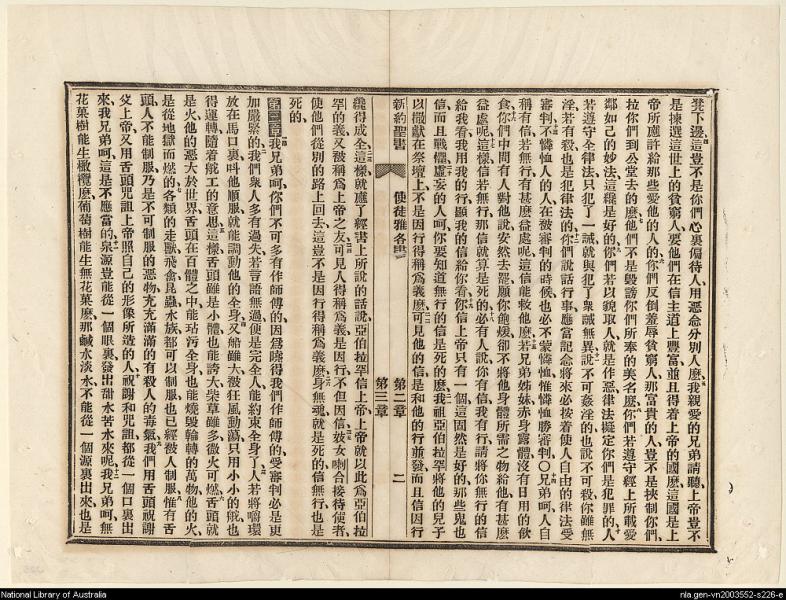 凳下邊、這豈不是你們心裏偏待人、用惡念分別人麼、我親愛的兄弟請聽、上帝豈不
是揀選這世上的貧窮人、要他們在信主道上豐富並且得着上帝的國麼、這國是上
帝所應許給那些愛他的人的、你們反倒羞辱貧窮人、那富貴的人豈不是挾制你們、
拉你們到公堂去的麼、他們不是毀謗你們所奉的美名麼、你們若遵守經上所載愛
鄰如己的妙法、這纔是好的、你們若以貌取人、就是作惡、律法擬定你們是犯罪的人、
若遵守全律法、只犯了一誡、就與犯了衆誡無異、說不可姦淫的、也說不可殺、你雖無
淫、若有殺、也是犯律法的、你們說話行事、應當記念將來必按着使人自由的律法受
審判、不憐恤人的人、在被審判的時候也必不蒙憐恤、惟憐恤勝審判、○兄弟呵、人自
稱有信、若無行有甚麼益處呢、這信能救他麼、若是兄弟姊妹、赤身露體沒有日用的飲
食、你們中間有人對他說、安然去罷、願你飽煖、卻不將他身體所需之物給他、有甚麼
益處呢、這樣信若無行、那信就算是死的、必有人說、你有信我有行、請將你無行的信
給我看、我用我的行顯我的信給你看、你信上帝只有一個、這固然是好的、那些鬼也
信而且戰懼、虛妄的人呵、你要知道無行的信是死的麼、我祖亞伯拉罕將他的兒子
以撒獻在祭壇上、不是因行得稱爲義麼、可見他的信是和他的行並發、而且信因行
新約聖書 使徒雅各書 第二章 第三章 二
纔得成全、這樣就應了經書上所說的話、說、亞伯拉罕信上帝、上帝就以此爲亞伯拉
罕的義、又被稱爲上帝之友、可見人得稱爲義是因行、不但因信、妓女喇合接待使者、
使他們從別的路上回去、這豈不是因行得稱爲義麼、身無魂就是死的、信無行也是
死的、
第三章 我兄弟呵、你們不可多有作師傅的、因爲曉得我們作師傅的受審判必是更
加嚴緊的、我們衆人多有過失、若言語無過、便是完全人、能約束全身了、人若將嚼環
放在馬口裏、叫他順服、就能調動他的全身、又船雖大、被狂風動蕩、只用小小的舵、也
得運轉隨着舵工的意思、這樣舌頭雖是小體、也能誇大、柴草雖多、微火可燃、舌頭就
是火、他的惡大於世界、舌頭在百體之中、能玷污全身、也能燒毀輪轉的萬物、他的火、
是從地獄而燃的、各類的走獸飛禽昆蟲水族都可以制服、也已經被人制服、惟有舌
頭人不能制服、乃是不可制服的惡物、充充滿滿的有殺人的毒氣、我們用舌頭祝謝
父上帝、又用舌頭咒詛上帝照自己的形像所造的人、祝謝和咒詛、都從一個口裏出
來、我兄弟呵、這是不應當的、泉源豈能從一個眼裏、發出甜水苦水來呢、我兄弟呵、無
花菓樹能生橄欖麼、葡萄樹能生無花菓麼、那鹹水淡水、不能從一個源裏出來、也是
National Library of Australia
nla.gen-vn2003552-s226-e